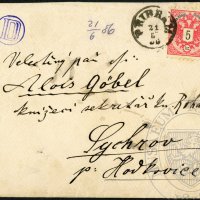 21/6 86
PŘIBRAM
21
5
Velectěný pan
Alois Göbel
knížecí sekretář
Sychrov
p: Hodkovice